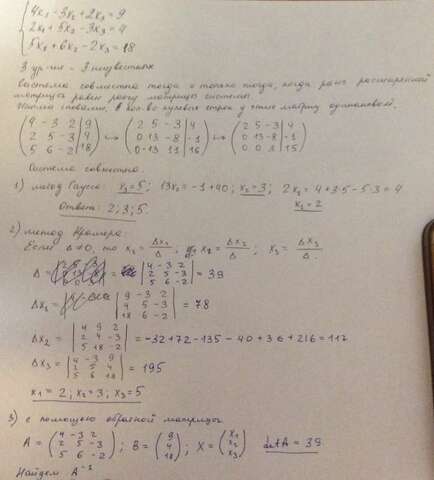 4x₁ - 3x₂ + 2x₃ = 9
2x₁ + 5x₂ - 3x₃ = 4
5x₁ + 6x₂ - 2x₃ = 18
3 ур-ния - 3 неизвестных
Система совместна тогда и только тогда, когда ранг расширенной
матрицы равен рангу матрицы системы.
кол-во нулевых строк у этих матриц одинаковой.
(4 -3 2 | 9; 2 5 -3 | 4; 5 6 -2 | 18) ↦ (2 5 -3 | 4; 0 13 -8 | -1; 0 -13 11 | 16) ↦ (2 5 -3 | 4; 0 13 -8 | -1; 0 0 3 | 15)
Система совместна
1) метод Гаусса: x₃ = 5; 13x₂ = -1 + 40; x₂ = 3; 2x₁ = 4 + 3·5 - 5·3 = 4
x₁ = 2
Ответ: 2; 3; 5.
2) метод Крамера:
Если Δ ≠ 0, то x₁ = Δx₁/Δ; x₂ = Δx₂/Δ; x₃ = Δx₃/Δ.
Δ = |4 -3 2; 2 5 -3; 5 6 -2| = 39
Δx₁ = |9 -3 2; 4 5 -3; 18 6 -2| = 78
Δx₂ = |4 9 2; 2 4 -3; 5 18 -2| = -32 + 72 - 135 - 40 + 36 + 216 = 117
Δx₃ = |4 -3 9; 2 5 4; 5 6 18| = 195
x₁ = 2; x₂ = 3; x₃ = 5
3) с помощью обратной матрицы
A = (4 -3 2; 2 5 -3; 5 6 -2); B = (9; 4; 18); X = (x₁; x₂; x₃) detA = 39
Найдем A⁻¹